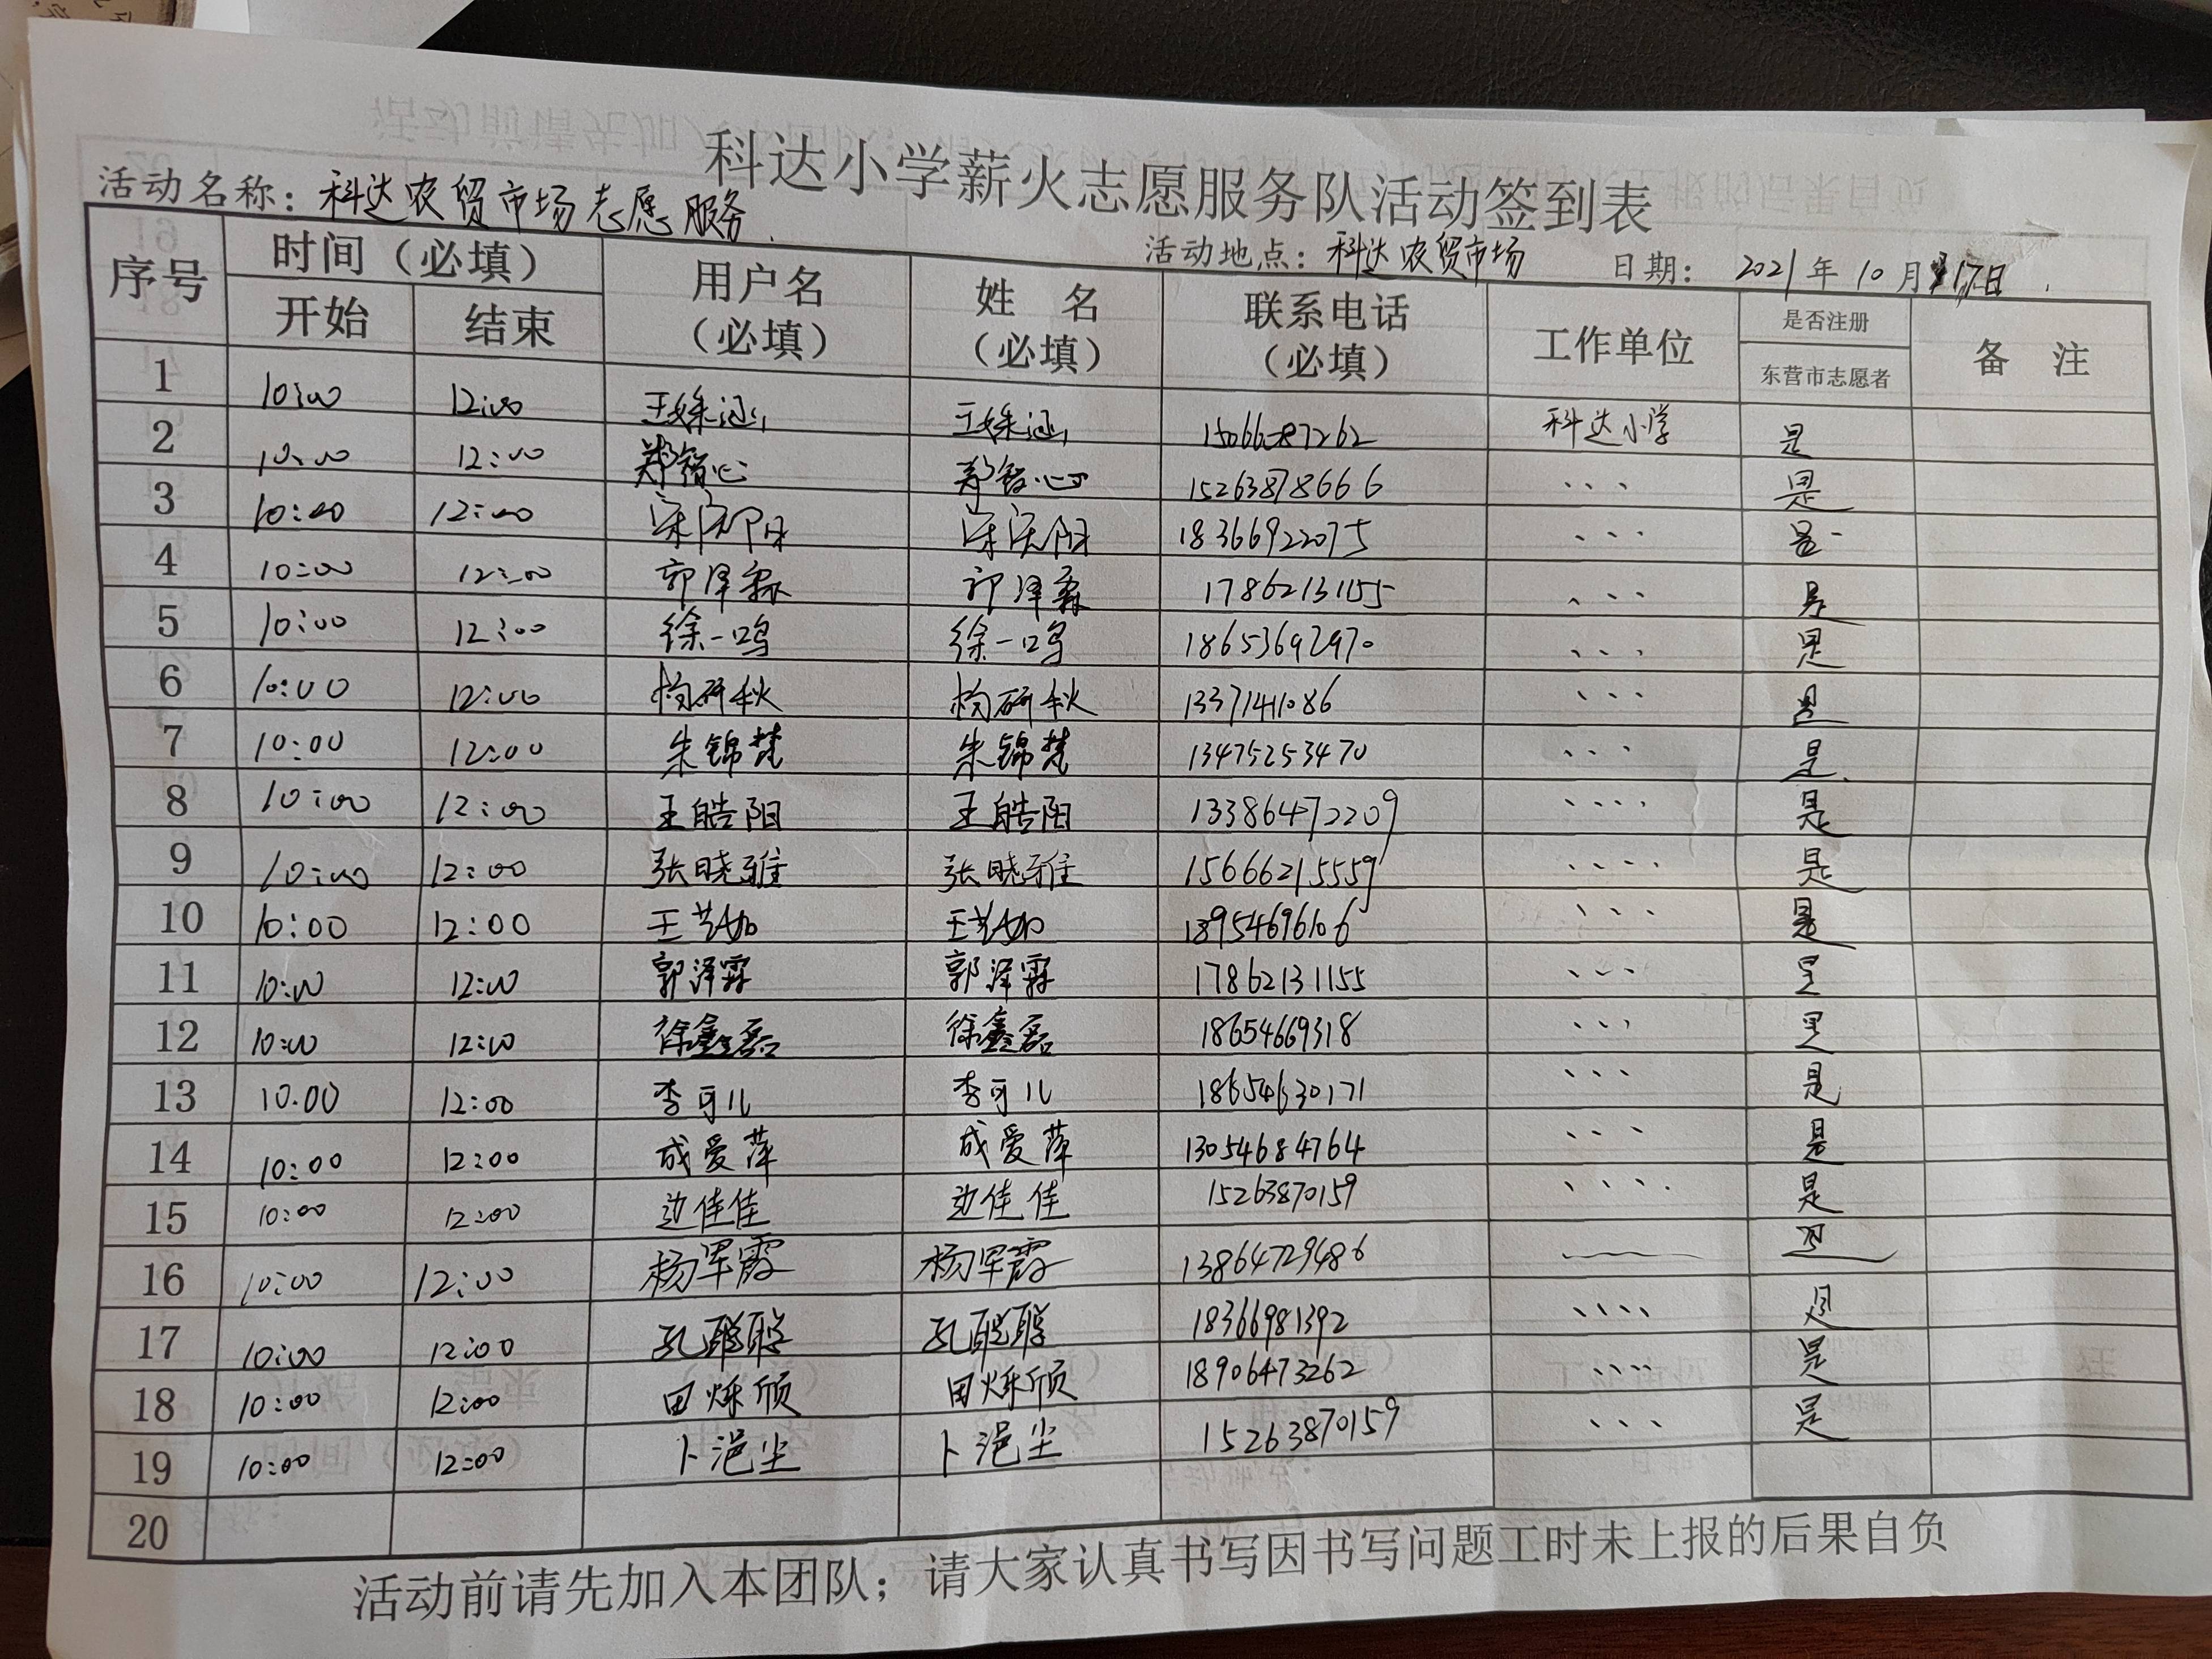 科达小学薪火志愿服务队活动签到表
活动名称：科达农贸市场志愿服务
活动地点：科达农贸市场 日期：2021年10月17日
序号 时间（必填） 用户名（必填） 姓名（必填） 联系电话（必填） 工作单位 是否注册 备注
开始 结束 东营市志愿者
1 10:00 12:00 王姝涵 王姝涵 15066087262 科达小学 是
2 10:00 12:00 郑铭心 郑铭心 15263878666 、、、 是
3 10:00 12:00 宋阳 宋阳 18366922075 、、、 是
4 10:00 12:00 郭泽霖 郭泽霖 17862131155 、、、 是
5 10:00 12:00 徐一鸣 徐一鸣 18653692970 、、、 是
6 10:00 12:00 研秋 研秋 13371441086 、、、 是
7 10:00 12:00 朱锦梵 朱锦梵 13475253470 、、、 是
8 10:00 12:00 王皓阳 王皓阳 13386472209 、、、、 是
9 10:00 12:00 张晓雅 张晓雅 15666215559 、、、、 是
10 10:00 12:00 王艺如 王艺如 18954696106 、、、 是
11 10:00 12:00 郭泽霖 郭泽霖 17862131155 、、、 是
12 10:00 12:00 徐鑫磊 徐鑫磊 18654669318 、、、 是
13 10.00 12:00 李可儿 李可儿 18654630171 、、、 是
14 10:00 12:00 成爱萍 成爱萍 13054684764 、、、 是
15 10:00 12:00 边佳佳 边佳佳 15263870159 、、、、 是
16 10:00 12:00 杨军霞 杨军霞 13864729486 是
17 10:00 12:00 孔聪聪 孔聪聪 18366981392 、、、、 是
18 10:00 12:00 田烁颀 田烁颀 18906473262 、、、、 是
19 10:00 12:00 卜浥尘 卜浥尘 15263870159 、、、 是
20
活动前请先加入本团队；请大家认真书写因书写问题工时未上报的后果自负